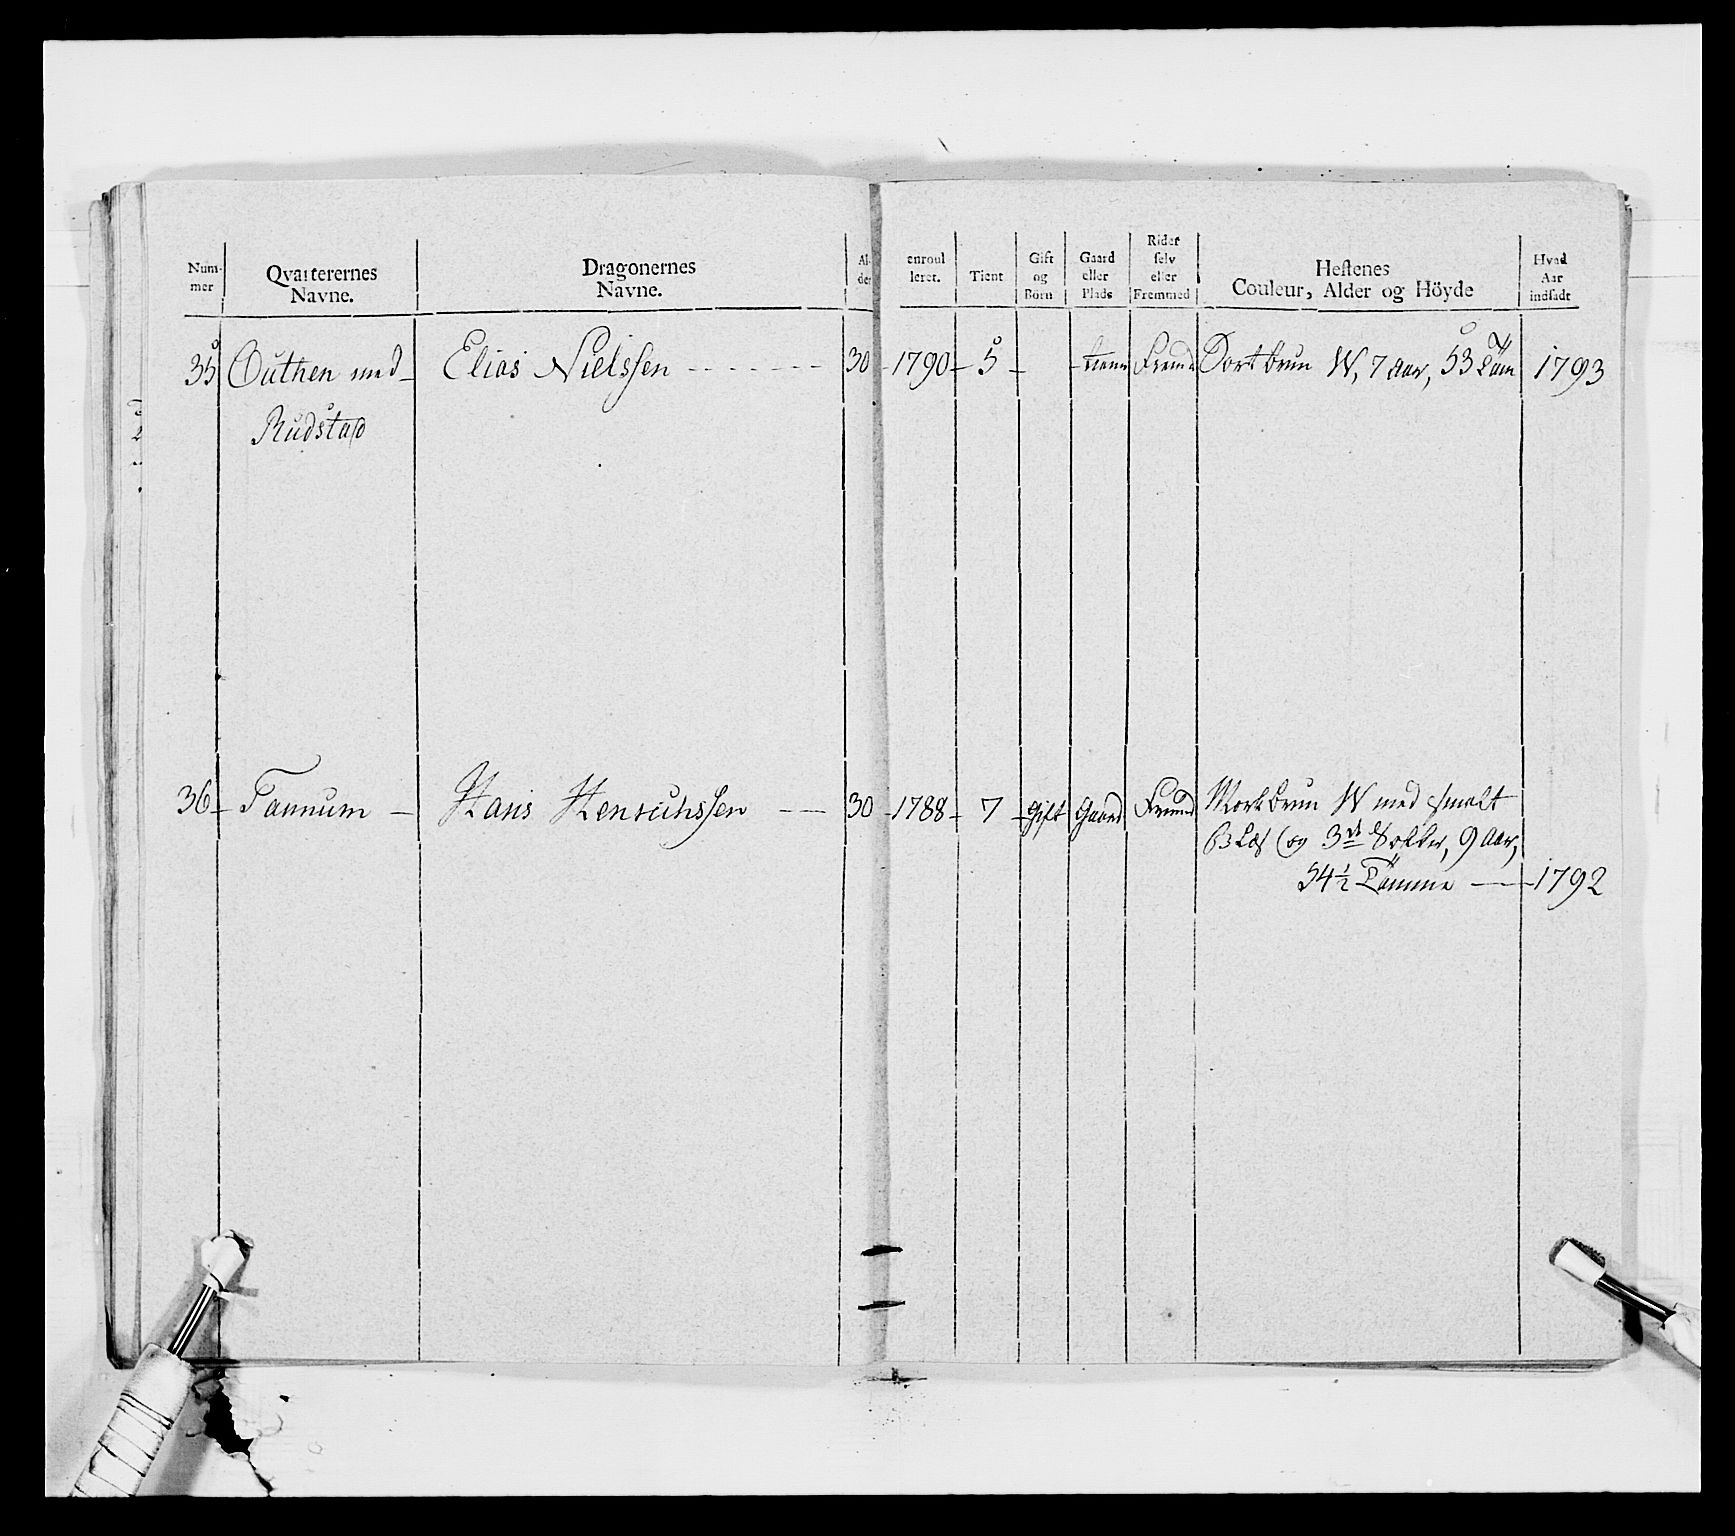 Num-
mer
Qvarterernes
Navne.
Dragonernes
Navne.
Al-
der
enroul
leret.
Tient
Gift
og
Börn
Gaard
eller
Plads
Rider
selv
eller
Fremmed
Hestenes
Couleur, Alder og Höyde
Hvad
Aar
indsadt
35 Outhen med Elias Nielssen 30 1790 5 tiener Fremd Sortbrun W, 7 Aar, 53 Töm 1793
Rudstad
36 Tannum Hans Henrichssen 30 1788 7 Gift Gaard Fremd Morkbrun W med smalt
og 3de Sokker, 9 Aar,
54½ Tömme 1792